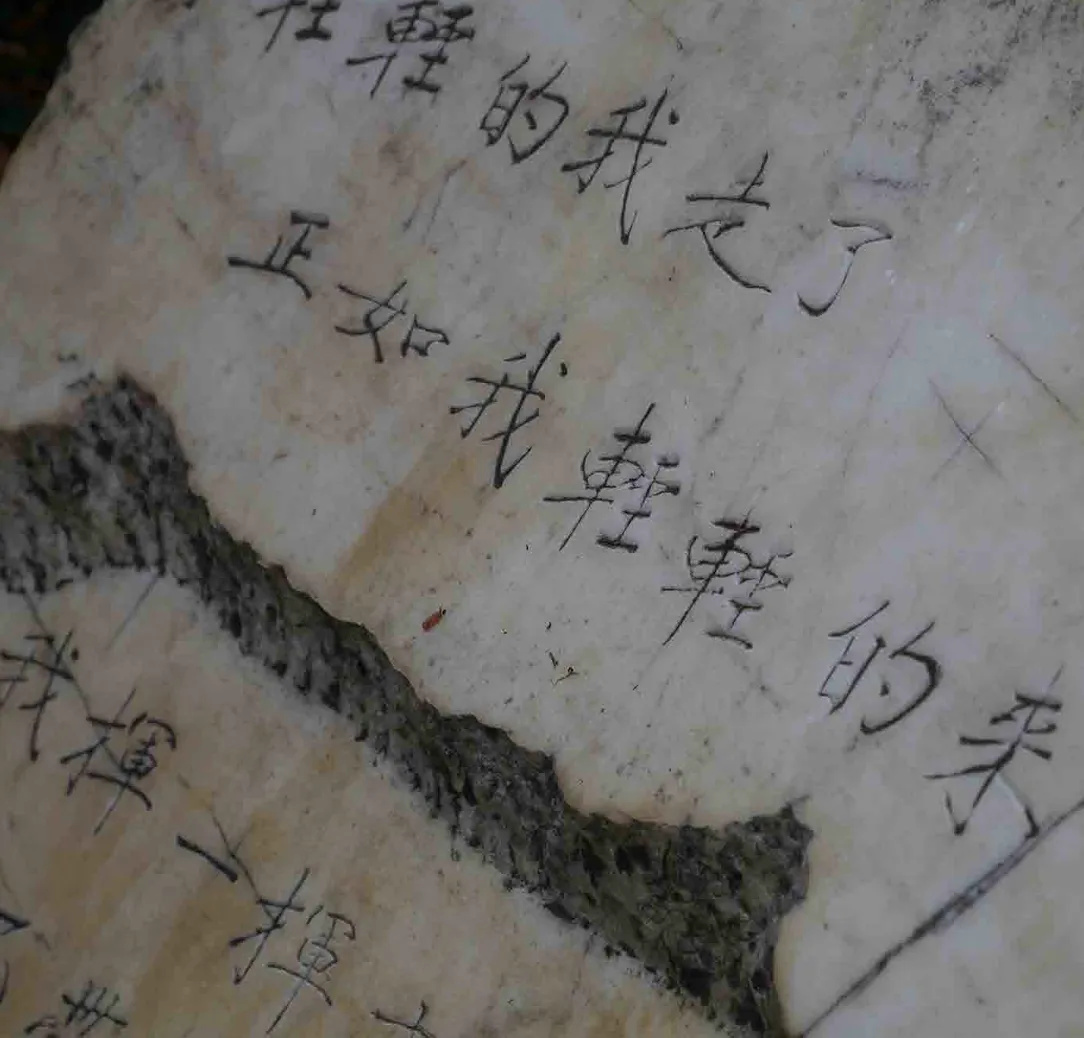 輕輕的我走了
正如我輕輕的来
我揮一揮